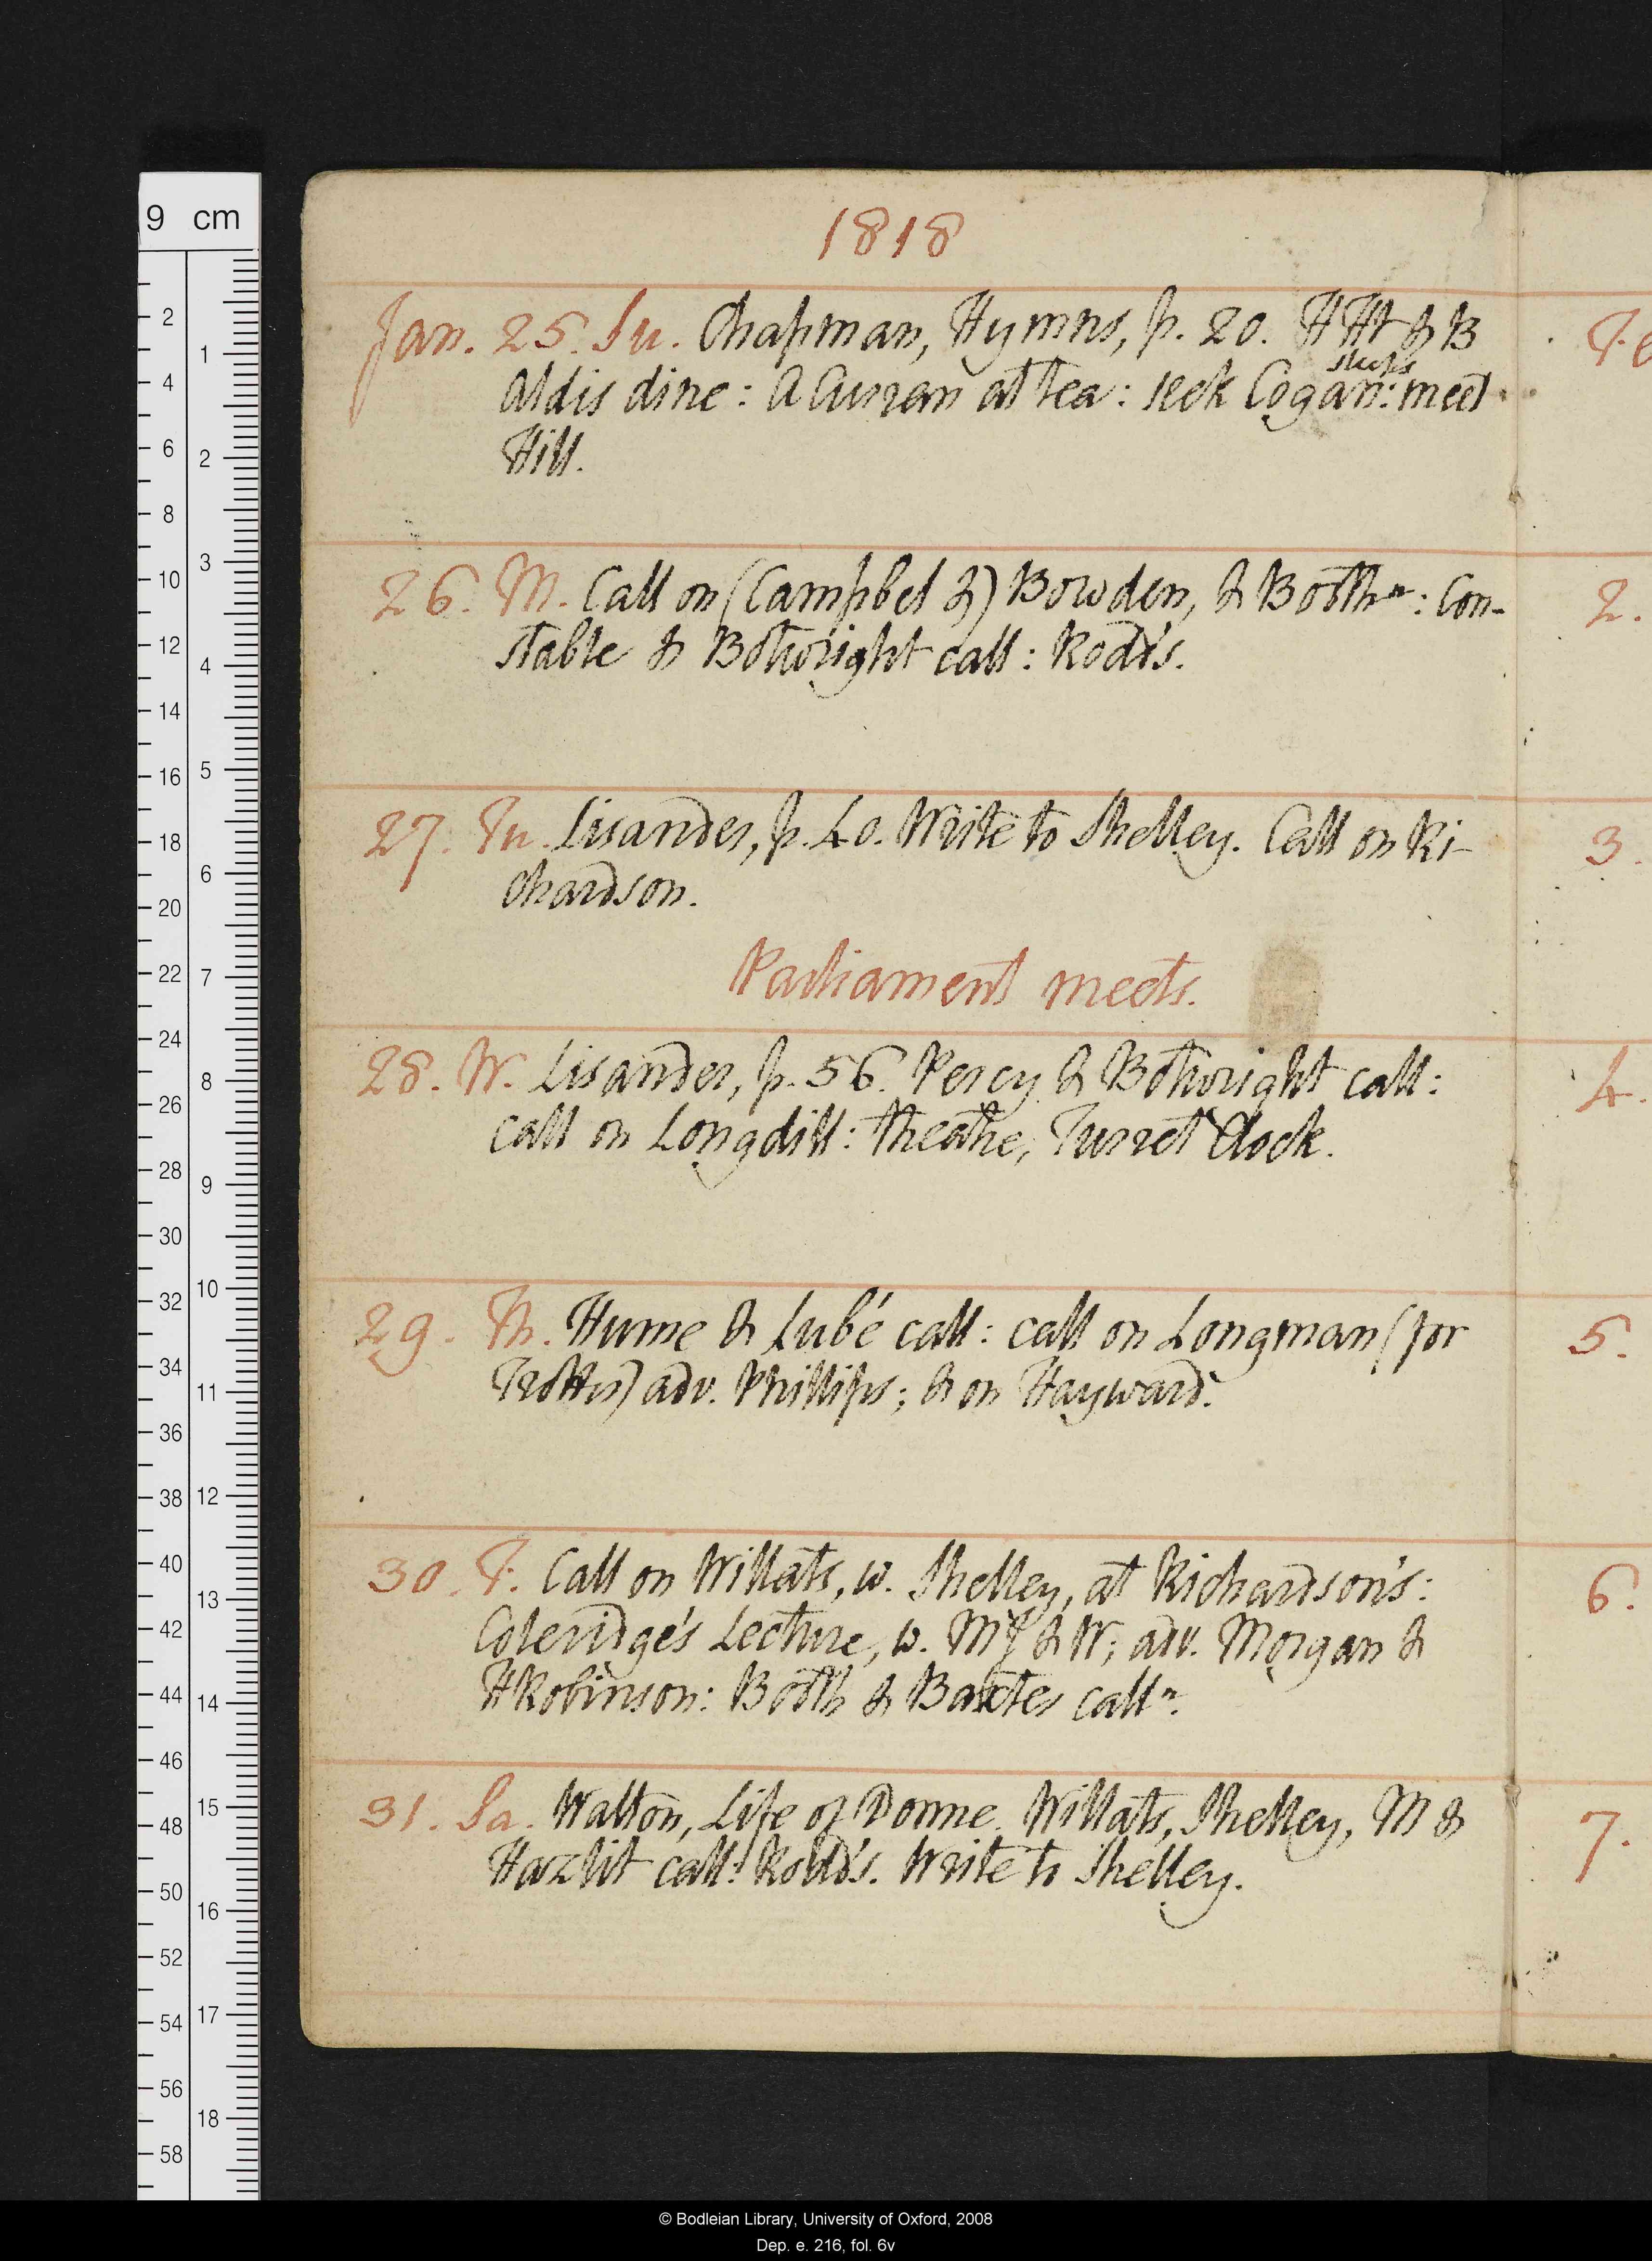 9 cm
1818
Jan. 25. Su. Chapman, Hymns, p. 20. HHt & B
Aldis dine: A Curran at tea: seek Cogan: meet
Hill.
26. M. Call on (Campbel &) Bowden, & Booth n: Con-
stable & Botwright call: Rodd's.
27. Tu. Lisander, p. 40. Write to Shelley. Call on Ri-
chardson.
Parliament meets.
28. W. Lisander, p. 56. Percy & Botwright call:
call on Longdill: theatre, Turret Clock.
29. Th. Hume & Lubé call: call on Longman (for
Trotter) adv. Phillips; & on Hayward.
30. F. Call on Willats, w. Shelley, at Richardson's:
Coleridge's Lecture, w. MJ & W; adv. Morgan &
HRobinson: Booth & Baxter call n.
31. Sa. Walton, Life of Donne. Willats, Shelley, M &
Hazlit call: Rodd's. Write to Shelley.
2.
3.
4.
5.
6.
7.
© Bodleian Library, University of Oxford, 2008
Dep. e. 216, fol. 6v